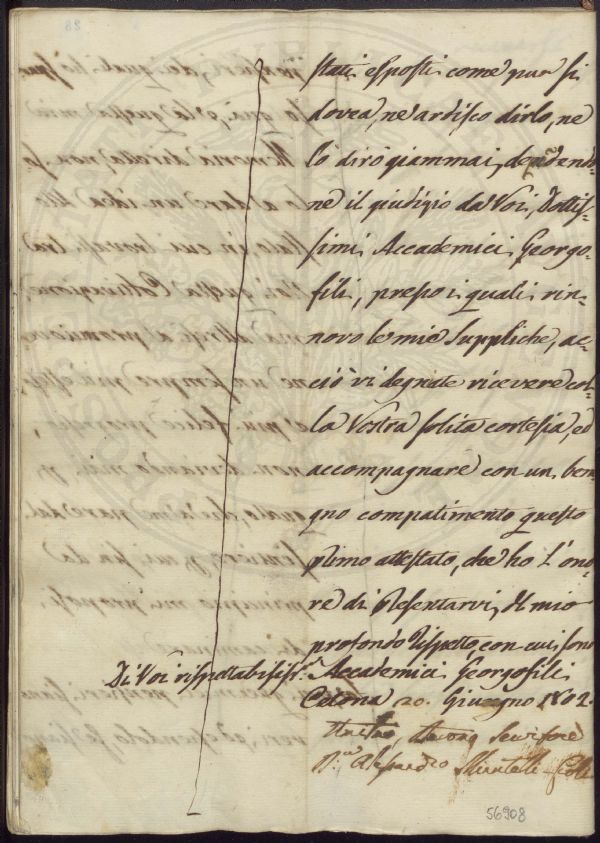 stati esposti come pur si
dovea, ne ardisco dirlo, ne
lo dirò giammai,
ne il giudizio da Voi, Dottis-
simi Accademici Georgo-
fili, presso i quali rin-
novo le mie Suppliche, ac-
ciò vi degnate ricevere col-
la Vostra solita cortesia, ed
accompagnare con un beni-
gno compatimento questo
primo attestato, che ho l'ono-
re di Presentarvi, Il mio
profondo Rispetto con cui sono
Di Voi rispettabilissi. Accademici Georgofili
Cetona 20. Giugno 1802.
Servitore
Alessandro
56908